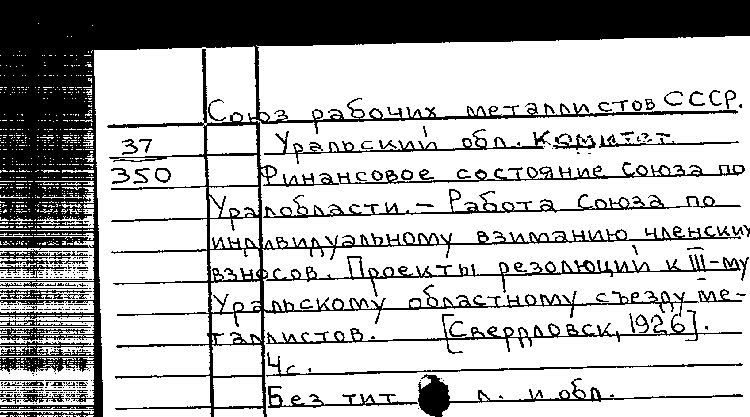 Союз рабочих металлистов СССР.
37 Уральский обл. Комитет.
350 Финансовое состояние Союза по
Уралобласти. – Работа Союза по
индивидуальному взиманию членских
взносов. Проекты резолюций к III-му
Уральскому областному съезду ме-
таллистов. [Свердловск, 1926].
4 с.
Без тит. л. и обл.